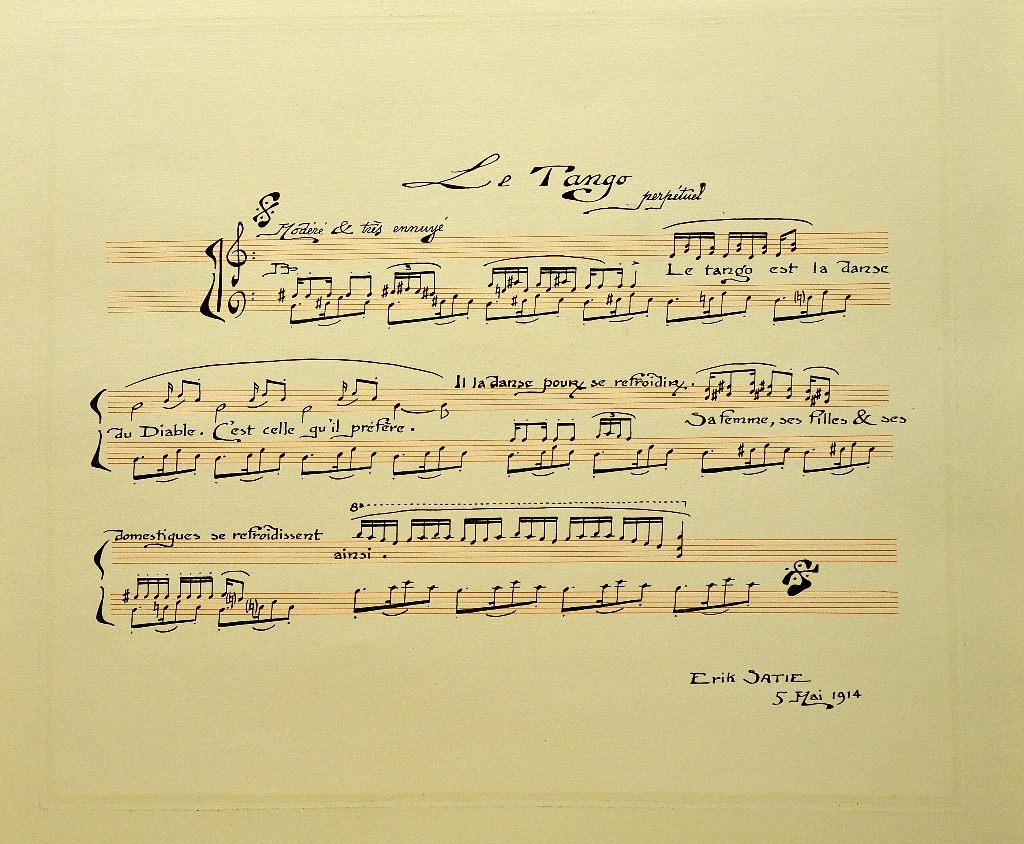 Le Tango
perpétuel
Modéré & très ennuyé
Le tango est la danse
Il la danse pour se refroidir.
du Diable. C'est celle qu'il préfère.
Sa femme, ses filles & ses
8a
domestiques se refroidissent
ainsi.
Erik SATIE
5 Mai 1914